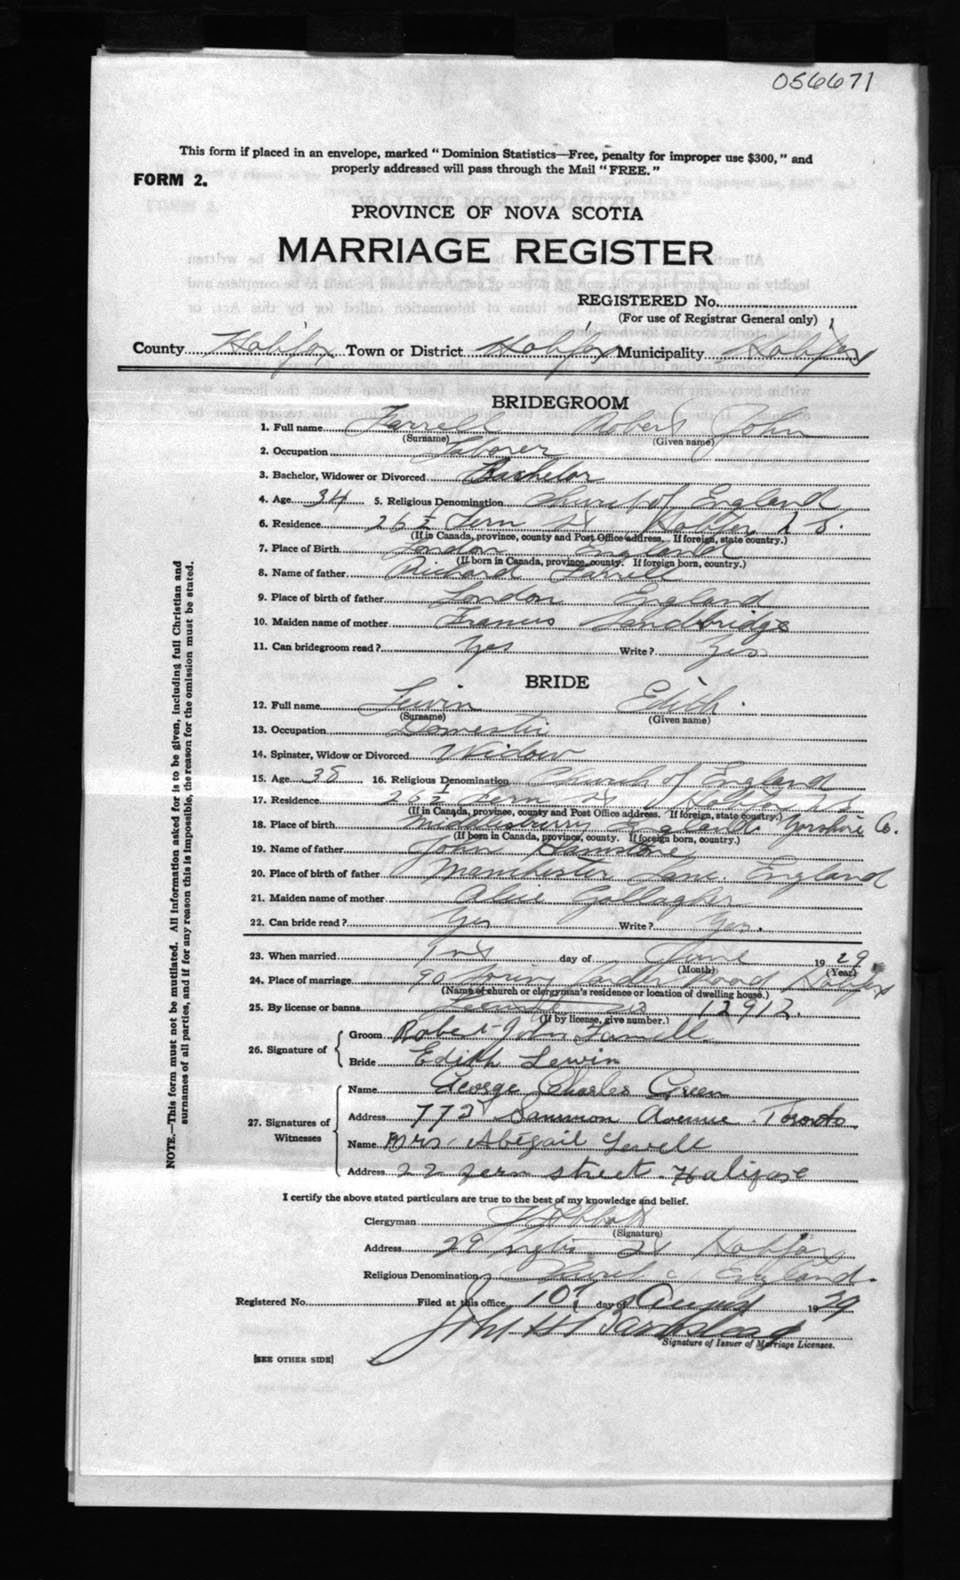 056671
This form if placed in an envelope, marked "Dominion Statistics—Free, penalty for improper use $300," and
properly addressed will pass through the Mail "FREE."
FORM 2.
PROVINCE OF NOVA SCOTIA
MARRIAGE REGISTER
REGISTERED No.
(For use of Registrar General only)
County Halifax Town or District Halifax Municipality Halifax
BRIDEGROOM
1. Full name Farrell Robert John
(Surname) (Given name)
2. Occupation Laborer
3. Bachelor, Widower or Divorced Bachelor
4. Age 34 5. Religious Denomination Church of England
6. Residence 26½ Fern St Halifax N S.
(If in Canada, province, county and Post Office address. If foreign, state country.)
7. Place of Birth London England
(If born in Canada, province, county. If foreign born, country.)
8. Name of father Richard Farrell
9. Place of birth of father London England
10. Maiden name of mother Francis Sandbridge
11. Can bridegroom read? Yes Write? Yes
BRIDE
12. Full name Lewin Edith.
(Surname) (Given name)
13. Occupation Domestic
14. Spinster, Widow or Divorced Widow
15. Age 38 16. Religious Denomination Church of England
17. Residence 26½ Fern St Halifax N S
(If in Canada, province, county and Post Office address. If foreign, state country.)
18. Place of birth England Yorshire Co.
(If born in Canada, province, county. If foreign born, country.)
19. Name of father John
20. Place of birth of father Manchester Lanc. England
21. Maiden name of mother Alice Gallagher
22. Can bride read? Yes Write? Yes.
23. When married day of June 1929.
(Month) (Year)
24. Place of marriage 90 Road Halifax
(Name of church or clergyman's residence or location of dwelling house.)
25. By license or banns License no 12912.
(If by license, give number.)
26. Signature of Groom Robert John Farrell
Bride Edith Lewin
27. Signatures of Witnesses Name George Charles Green
Address 773 Sammon Avenue. Toronto
Name Mrs Abigail
Address 22 fern street. Halifax
I certify the above stated particulars are true to the best of my knowledge and belief.
Clergyman
(Signature)
Address 29 St Halifax
Religious Denomination Church of England.
Registered No. Filed at this office 10th day of August 1929
John H
Signature of Issuer of Marriage Licenses.
[SEE OTHER SIDE]
NOTE.—This form must not be mutilated. All information asked for is to be given, including full Christian and
surnames of all parties, and if for any reason this is impossible, the reason for the omission must be stated.